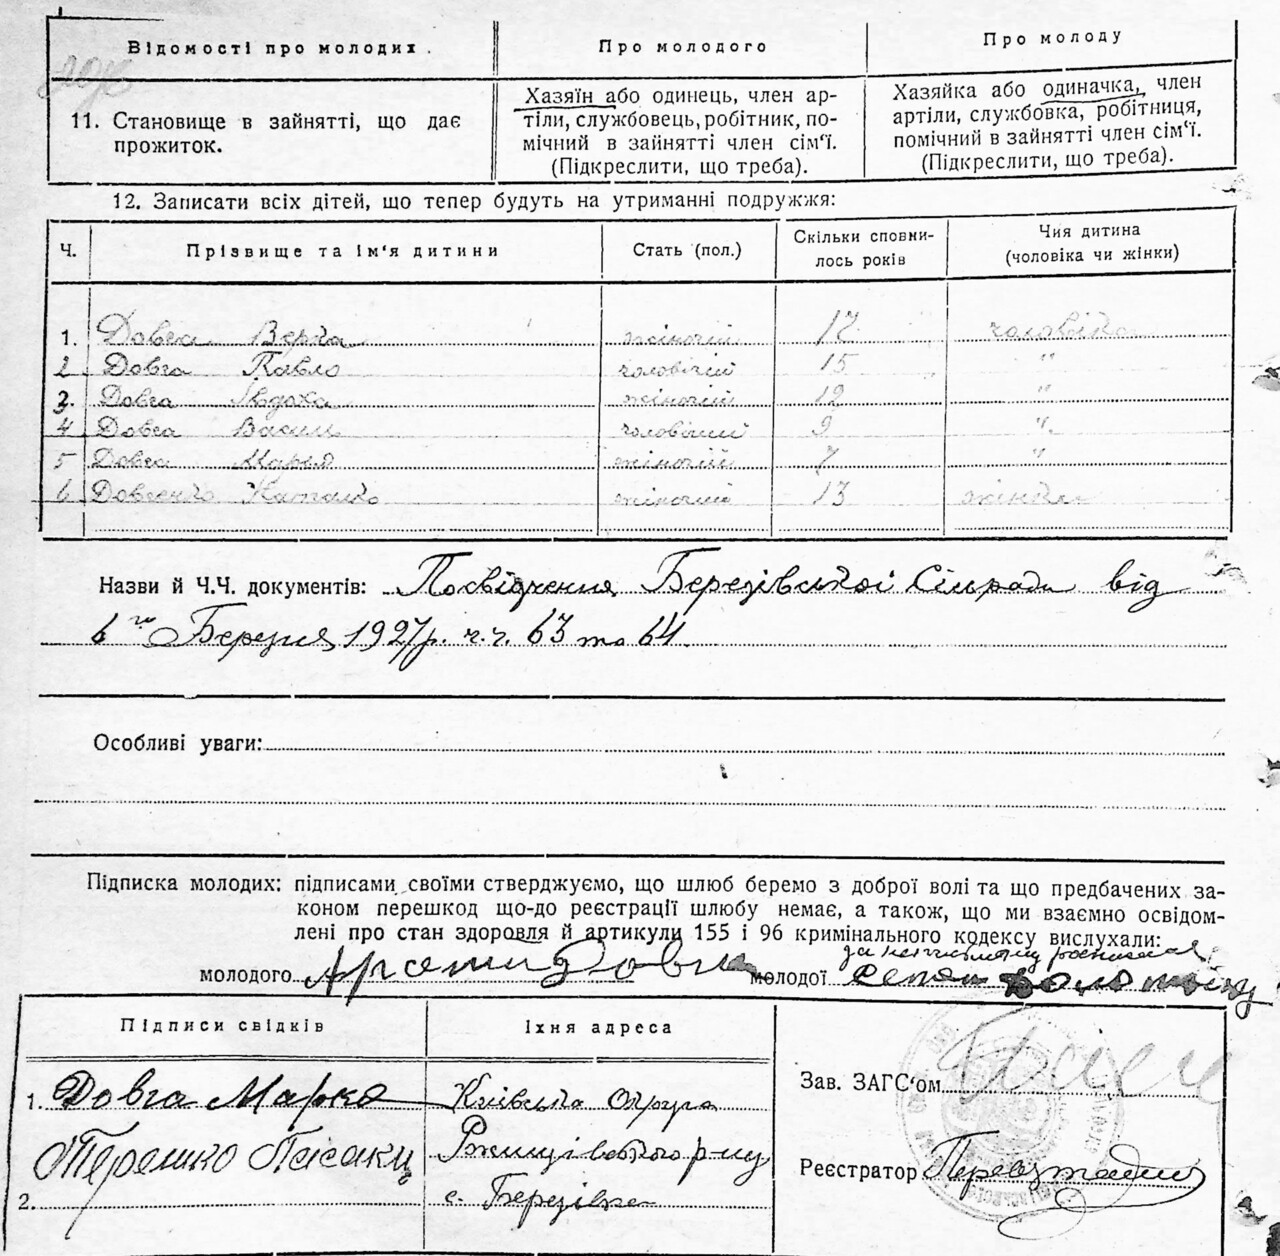 Відомості про молодих.
Про молодого
Про молоду
11. Становище в зайнятті, що дає
прожиток.
Хазяїн або одинець, член ар-
тіли, службовець, робітник, по-
мічний в зайнятті член сім'ї.
(Підкреслити, що треба).
Хазяйка або одиначка, член
артіли, службовка, робітниця,
помічний в зайнятті член сім'ї.
(Підкреслити, що треба).
12. Записати всіх дітей, що тепер будуть на утриманні подружжя:
Ч. Прізвище та ім'я дитини Стать (пол.) Скільки сповни-
лось років Чия дитина
(чоловіка чи жінки)
1. Довга жіночий 17 чоловіка
2 Довга Павло чоловічий 15 "
3. Довга Явдоха жіночий 12 "
4 Довга Василь чоловічий 9 "
5 Довга Марія жіночий 7 "
6 Довгенко жіночий 13 жінки
Назви й Ч.Ч. документів: Посвідчення Березівської Сільради від
6 го Березня 1927 р. ч.ч. 63 та 64.
Особливі уваги:
Підписка молодих: підписами своїми стверджуємо, що шлюб беремо з доброї волі та що предбачених за-
коном перешкод що-до реєстрації шлюбу немає, а також, що ми взаємно освідом-
лені про стан здоровля й артикули 155 і 96 кримінального кодексу вислухали:
за неписьменну
молодого Довга молодої
Підписи свідків Їхня адреса
1. Довга Марко Київська Округа
Ржищівського р-ну
2. с. Березівка
Зав. ЗАГС'ом
Реєстратор